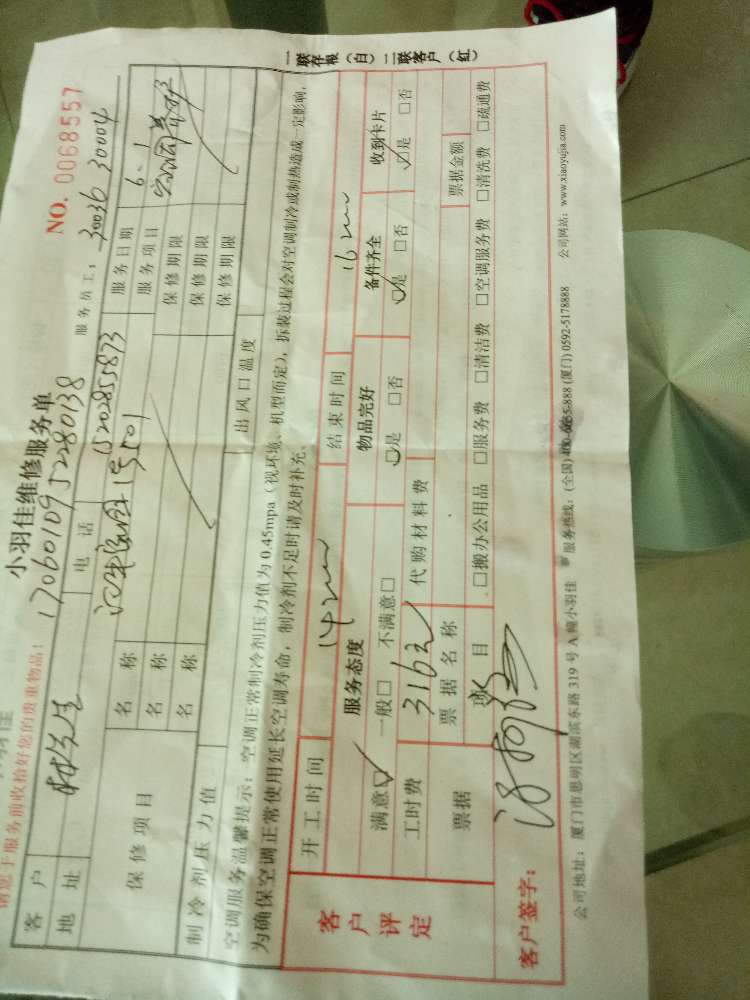 小羽佳维修服务单
NO. 0068557
请您于服务前收拾好您的贵重物品！
17060109 52280138
服务员工： 30036 30004
客户 先生 电话 15202855873 服务日期 6.1
地址 服务项目
保修项目 名称 保修期限
名称 保修期限
名称 保修期限
制冷剂压力值 出风口温度
空调服务温馨提示：空调正常制冷剂压力值为0.45mpa（视环境、机型而定），拆装过程会对空调制冷或制热造成一定影响，
为确保空调正常使用延长空调寿命，制冷剂不足时请及时补充。
一联存根（白）二联客户（红）
客户评定
开工时间 结束时间
服务态度 物品完好 备件齐全 收到卡片
满意☑ 一般□ 不满意□ ☑是 □否 ☑是 □否 ☑是 □否
工时费 代购材料费
票据 票据名称 票据金额
项目 □搬办公用品 □服务费 □清洁费 □空调服务费 □清洗费 □疏通费
客户签字：
公司地址：厦门市思明区湖滨东路319号A幢小羽佳 服务热线：(全国) (厦门) 0592-5178888 公司网站：www.xiaoyujia.com